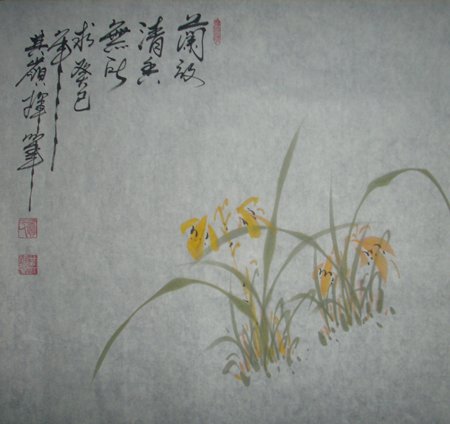 蘭放
清香
無所
求癸巳
年
其嶺揮筆